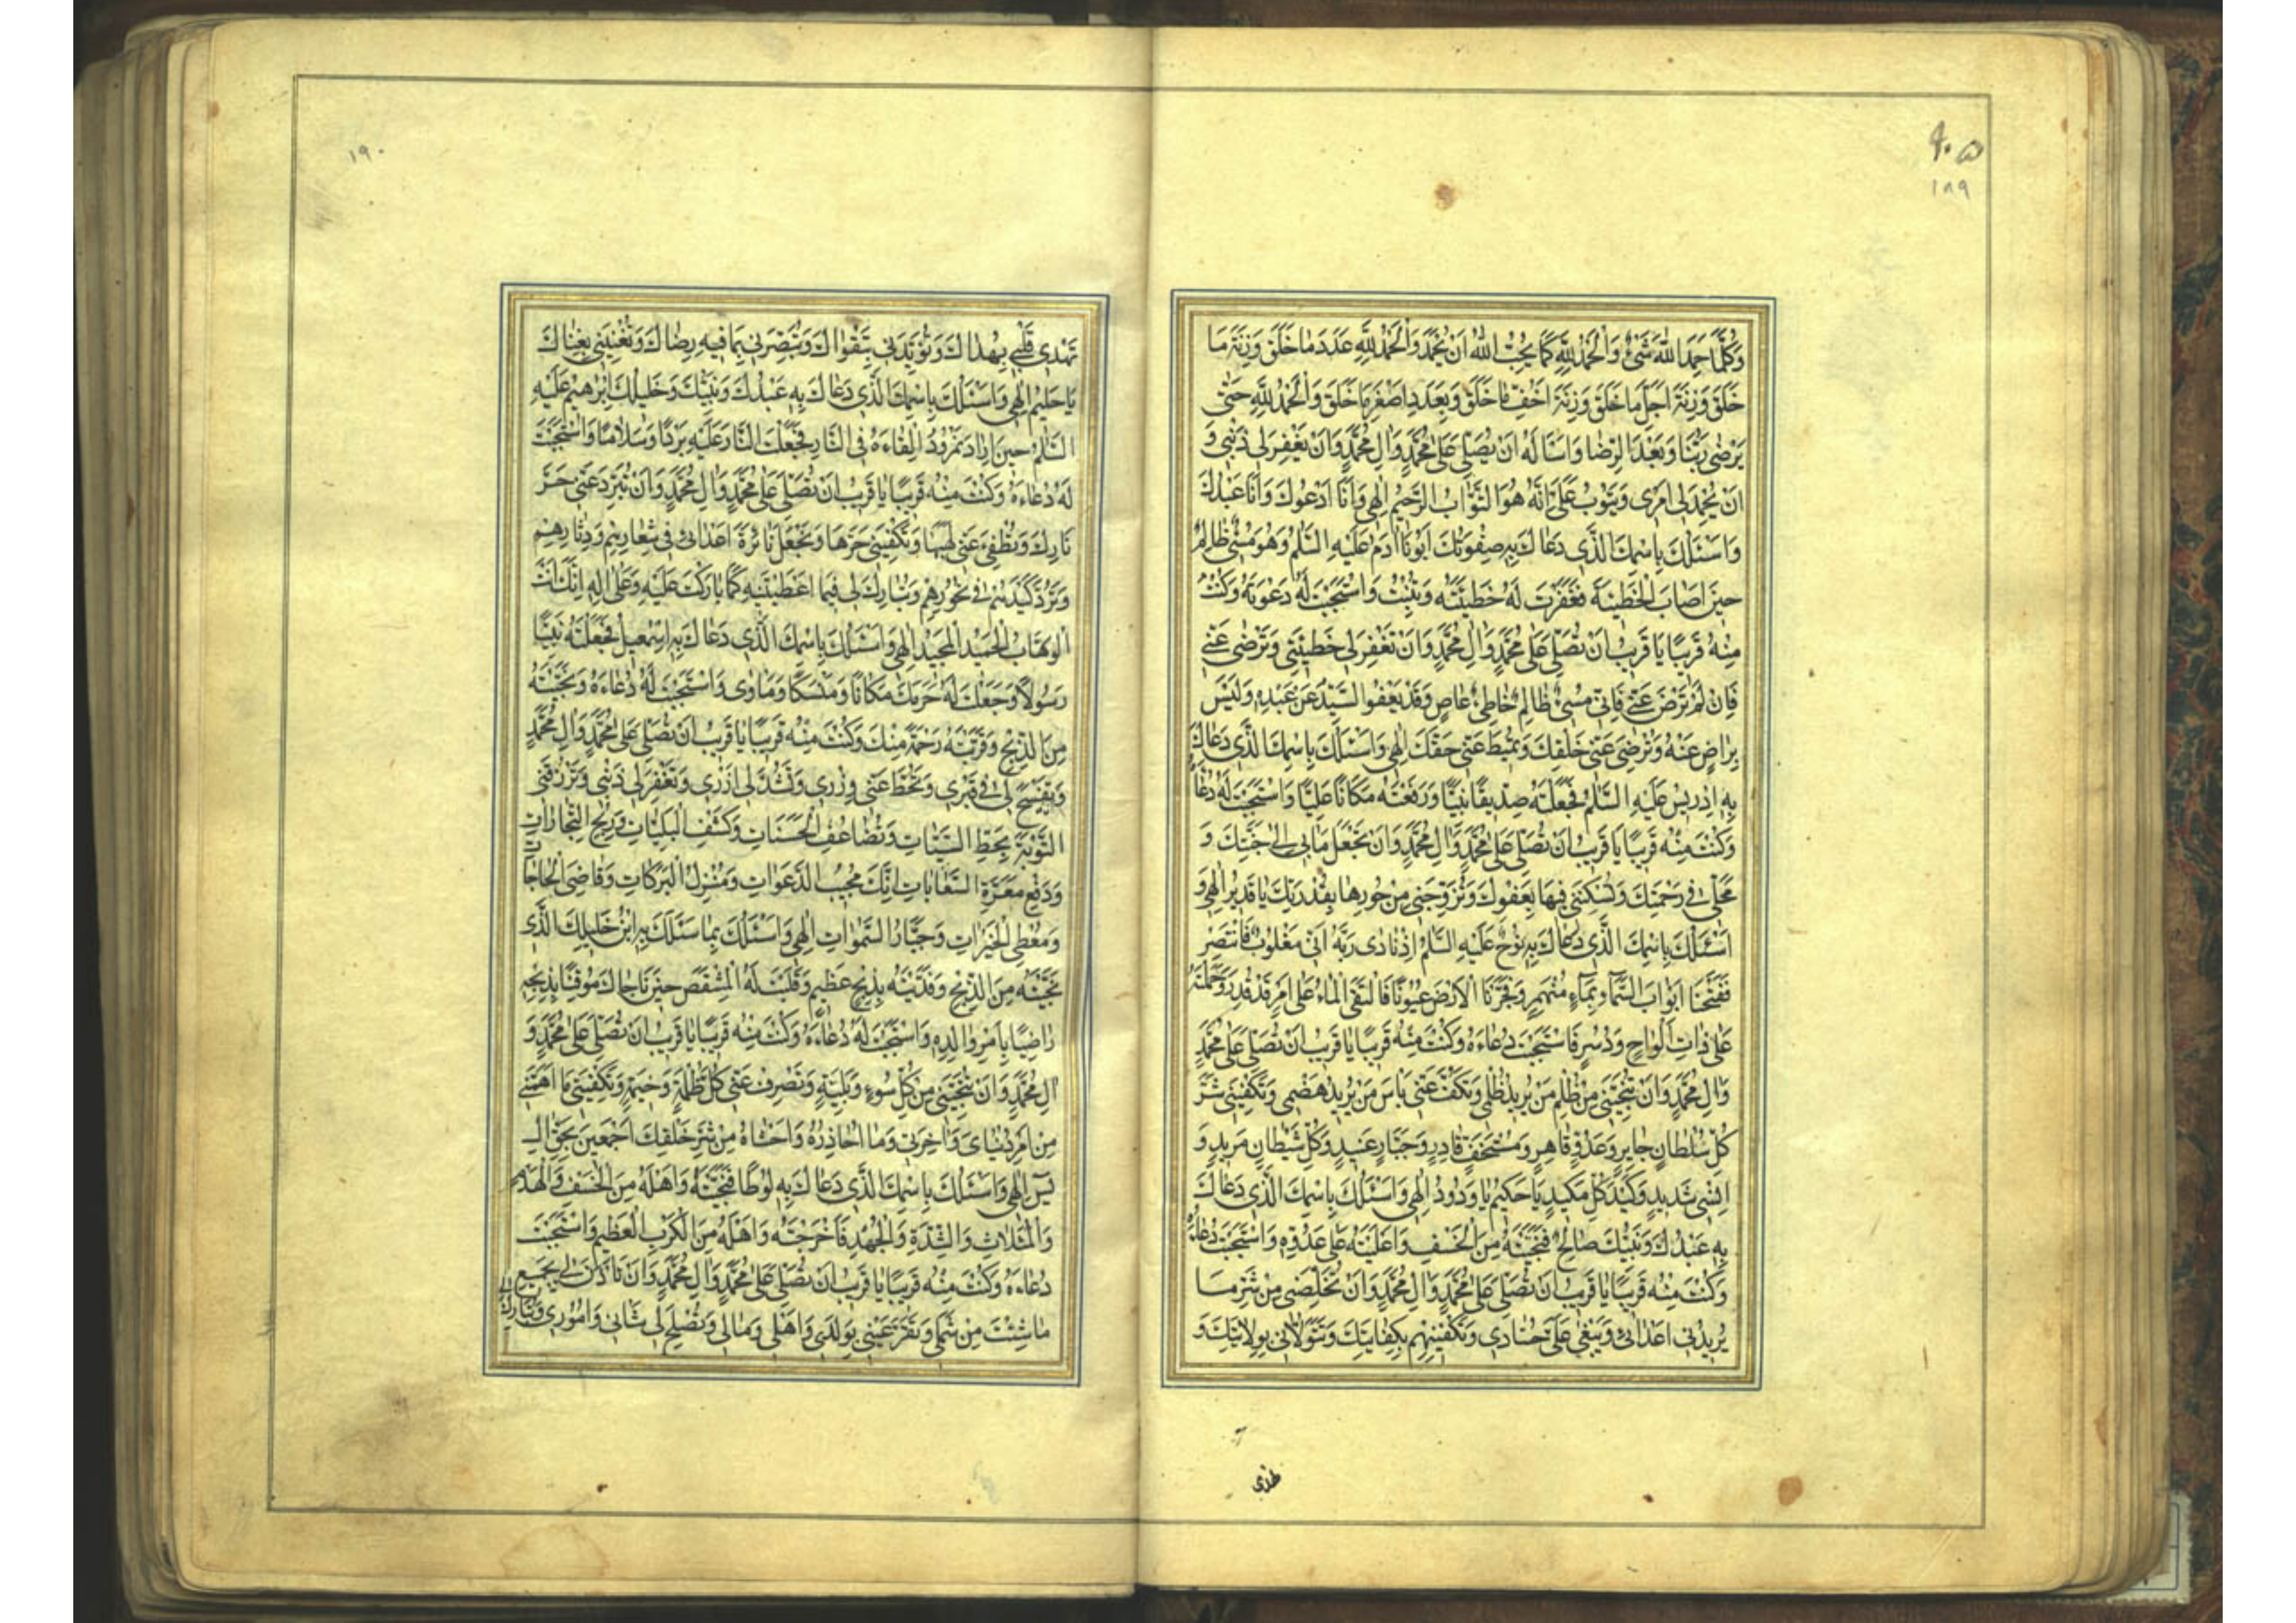 ۹۰۵
۱۸۹
وَكُلَّمَا حَمِدَ اللّٰهَ شَیْءٌ وَالْحَمْدُ لِلّٰهِ كَمَا يُحِبُّ اللّٰهُ اَنْ يُحْمَدَ وَالْحَمْدُ لِلّٰهِ عَدَدَ مَا خَلَقَ وَزِنَةَ مَا
خَلَقَ وَزِنَةَ اَجَلِّ مَا خَلَقَ وَزِنَةَ اَخَفِّ مَا خَلَقَ وَبِعَدَدِ اَصْغَرِ مَا خَلَقَ وَالْحَمْدُ لِلّٰهِ حَتّٰى
يَرْضٰى رَبُّنَا وَبَعْدَ الرِّضَا وَاَسْاَلُهُ اَنْ يُصَلِّىَ عَلٰى مُحَمَّدٍ وَاٰلِ مُحَمَّدٍ وَاَنْ يَغْفِرَ لِي ذَنْبِي وَ
اَنْ يُحْمِدَ لِي اَمْرِي وَيَتُوبَ عَلَيَّ اِنَّهُ هُوَ التَّوَّابُ الرَّحِيمُ اِلٰهِي وَاَنَا اَدْعُوكَ وَاَنَا عَبْدُكَ
وَاَسْئَلُكَ بِاسْمِكَ الَّذِي دَعَاكَ بِهِ صِفْوَتُكَ اَبُونَا اٰدَمُ عَلَيْهِ السَّلٰمُ وَهُوَ مُسِیْءٌ ظَالِمٌ
حِينَ اَصَابَ الْخَطِيئَةَ فَغَفَرْتَ لَهُ خَطِيئَتَهُ وَتُبْتَ وَاسْتَجَبْتَ لَهُ دَعْوَتَهُ وَكُنْتَ
مِنْهُ قَرِيبًا يَا قَرِيبُ اَنْ تُصَلِّىَ عَلٰى مُحَمَّدٍ وَاٰلِ مُحَمَّدٍ وَاَنْ تَغْفِرَ لِي خَطِيئَتِي وَتَرْضٰى عَنِّي
فَاِنْ لَمْ تَرْضَ عَنِّي فَاِنِّي مُسِیْءٌ ظَالِمٌ خَاطِئٌ عَاصٍ وَقَدْ يَعْفُو السَّيِّدُ عَنْ عَبْدِهِ وَلَيْسَ
بِرَاضٍ عَنْهُ وَتُرْضِىَ عَنِّي خَلْقَكَ وَتُمِيطَ عَنِّي حَقَّكَ اِلٰهِي وَاَسْئَلُكَ بِاسْمِكَ الَّذِي دَعَاكَ
بِهِ اِدْرِيسُ عَلَيْهِ السَّلٰمُ فَجَعَلْتَهُ صِدِّيقًا نَبِيًّا وَرَفَعْتَهُ مَكَانًا عَلِيًّا وَاسْتَجَبْتَ لَهُ دُعَاءَهُ
وَكُنْتَ مِنْهُ قَرِيبًا يَا قَرِيبُ اَنْ تُصَلِّىَ عَلٰى مُحَمَّدٍ وَاٰلِ مُحَمَّدٍ وَاَنْ تَجْعَلَ مَاٰبِي اِلٰى جَنَّتِكَ وَ
مَحَلِّي فِي رَحْمَتِكَ وَتُسْكِنَنِي فِيهَا بِعَفْوِكَ وَتُزَوِّجَنِي مِنْ حُورِهَا بِقُدْرَتِكَ يَا قَدِيرُ اِلٰهِي وَ
اَسْئَلُكَ بِاسْمِكَ الَّذِي دَعَاكَ بِهِ نُوحٌ عَلَيْهِ السَّلٰمُ اِذْ نَادٰى رَبَّهُ اَنِّي مَغْلُوبٌ فَانْتَصِرْ
فَفَتَحْنَا اَبْوَابَ السَّمَاءِ بِمَاءٍ مُنْهَمِرٍ وَفَجَّرْنَا الْاَرْضَ عُيُونًا فَالْتَقَى الْمَاءُ عَلٰى اَمْرٍ قَدْ قُدِرَ وَحَمَلْتَهُ
عَلٰى ذَاتِ اَلْوَاحٍ وَدُسُرٍ فَاسْتَجَبْتَ دُعَاءَهُ وَكُنْتَ مِنْهُ قَرِيبًا يَا قَرِيبُ اَنْ تُصَلِّىَ عَلٰى مُحَمَّدٍ
وَاٰلِ مُحَمَّدٍ وَاَنْ تُنْجِيَنِي مِنْ ظُلْمِ مَنْ يُرِيدُ ظُلْمِي وَتَكُفَّ عَنِّي بَاْسَ مَنْ يُرِيدُ هَضْمِي وَتَكْفِيَنِي شَرَّ
كُلِّ سُلْطَانٍ جَايِرٍ وَعَدُوٍّ قَاهِرٍ وَمُسْتَخِفٍّ قَادِرٍ وَجَبَّارٍ عَنِيدٍ وَكُلِّ شَيْطَانٍ مَرِيدٍ وَ
اِنْسِیٍّ شَدِيدٍ وَكَيْدَ كُلِّ مَكِيدٍ يَا حَكِيمُ يَا وَدُودُ اِلٰهِي وَاَسْئَلُكَ بِاسْمِكَ الَّذِي دَعَاكَ
بِهِ عَبْدُكَ وَنَبِيُّكَ صَالِحٌ فَنَجَّيْتَهُ مِنَ الْخَسْفِ وَاَعْلَيْتَهُ عَلٰى عَدُوِّهِ وَاسْتَجَبْتَ دُعَاءَهُ
وَكُنْتَ مِنْهُ قَرِيبًا يَا قَرِيبُ اَنْ تُصَلِّىَ عَلٰى مُحَمَّدٍ وَاٰلِ مُحَمَّدٍ وَاَنْ تُخَلِّصَنِي مِنْ شَرِّ مَا
يُرِيدُنِي اَعْدَائِي وَيَبْغِي عَلَيَّ حُسَّادِي وَتَكْفِيَنِيهِمْ بِكِفَايَتِكَ وَتَتَوَلَّانِي بِوِلَايَتِكَ وَ
۱۹۰
تَهْدِيَ قَلْبِي بِهُدَاكَ وَتُؤَيِّدَنِي بِتَقْوَاكَ وَتُبَصِّرَنِي بِمَا فِيهِ رِضَاكَ وَتُغْنِيَنِي بِغِنَاكَ
يَا حَلِيمُ اِلٰهِي وَاَسْئَلُكَ بِاسْمِكَ الَّذِي دَعَاكَ بِهِ عَبْدُكَ وَنَبِيُّكَ وَخَلِيلُكَ اِبْرٰهِيمُ عَلَيْهِ
السَّلٰمُ حِينَ اَرَادَ نَمْرُودُ اِلْقَاءَهُ فِي النَّارِ فَجَعَلْتَ النَّارَ عَلَيْهِ بَرْدًا وَسَلَامًا وَاسْتَجَبْتَ
لَهُ دُعَاءَهُ وَكُنْتَ مِنْهُ قَرِيبًا يَا قَرِيبُ اَنْ تُصَلِّىَ عَلٰى مُحَمَّدٍ وَاٰلِ مُحَمَّدٍ وَاَنْ تُبَرِّدَ عَنِّي حَرَّ
نَارِكَ وَتُطْفِئَ عَنِّي لَهِيبَهَا وَتَكْفِيَنِي حَرَّهَا وَتَجْعَلَ نَائِرَةَ اَعْدَائِي فِي شِعَارِهِمْ وَدِثَارِهِمْ
وَتَرُدَّ كَيْدَهُمْ فِي نُحُورِهِمْ وَتُبَارِكَ لِي فِيمَا اَعْطَيْتَنِيهِ كَمَا بَارَكْتَ عَلَيْهِ وَعَلٰى اٰلِهِ اِنَّكَ اَنْتَ
الْوَهَّابُ الْحَمِيدُ الْمَجِيدُ اِلٰهِي وَاَسْئَلُكَ بِاسْمِكَ الَّذِي دَعَاكَ بِهِ اِسْمٰعِيلُ فَجَعَلْتَهُ نَبِيًّا
رَسُولًا وَجَعَلْتَ لَهُ حَرَمَكَ مَكَانًا وَمَنْسَكًا وَمَاْوٰى وَاسْتَجَبْتَ لَهُ دُعَاءَهُ وَنَجَّيْتَهُ
مِنَ الذَّبْحِ وَقَرَّبْتَهُ رَحْمَةً مِنْكَ وَكُنْتَ مِنْهُ قَرِيبًا يَا قَرِيبُ اَنْ تُصَلِّىَ عَلٰى مُحَمَّدٍ وَاٰلِ مُحَمَّدٍ
وَتَفْسَحَ لِي فِي قَبْرِي وَتَحُطَّ عَنِّي وِزْرِي وَتَشُدَّ لِي اَزْرِي وَتَغْفِرَ لِي ذَنْبِي وَتَرْزُقَنِي
التَّوْبَةَ بِحَطِّ السَّيِّئَاتِ وَتَضَاعُفِ الْحَسَنَاتِ وَكَشْفِ الْبَلِيَّاتِ وَرِبْحِ التِّجَارَاتِ
وَدَفْعِ مَعَرَّةِ السِّعَايَاتِ اِنَّكَ مُجِيبُ الدَّعَوَاتِ وَمُنْزِلُ الْبَرَكَاتِ وَقَاضِى الْحَاجَاتِ
وَمُعْطِى الْخَيْرَاتِ وَجَبَّارُ السَّمٰوَاتِ اِلٰهِي وَاَسْئَلُكَ بِمَا سَئَلَكَ بِهِ ابْنُ خَلِيلِكَ الَّذِي
نَجَّيْتَهُ مِنَ الذَّبْحِ وَفَدَيْتَهُ بِذِبْحٍ عَظِيمٍ وَقَلَبْتَ لَهُ الْمِشْقَصَ حِينَ نَاجَاكَ مُوقِنًا بِذَبْحِهِ
رَاضِيًا بِاَمْرِ وَالِدِهِ وَاسْتَجَبْتَ لَهُ دُعَاءَهُ وَكُنْتَ مِنْهُ قَرِيبًا يَا قَرِيبُ اَنْ تُصَلِّىَ عَلٰى مُحَمَّدٍ وَ
اٰلِ مُحَمَّدٍ وَاَنْ تُنْجِيَنِي مِنْ كُلِّ سُوءٍ وَبَلِيَّةٍ وَتَصْرِفَ عَنِّي كُلَّ ظُلْمَةٍ وَخِيمَةٍ وَتَكْفِيَنِي مَا اَهَمَّنِي
مِنْ اَمْرِ دُنْيَايَ وَاٰخِرَتِي وَمَا اُحَاذِرُهُ وَاَخْشَاهُ مِنْ شَرِّ خَلْقِكَ اَجْمَعِينَ بِحَقِّ اٰلِ
يٰسٓ اِلٰهِي وَاَسْئَلُكَ بِاسْمِكَ الَّذِي دَعَاكَ بِهِ لُوطًا فَنَجَّيْتَهُ وَاَهْلَهُ مِنَ الْخَسْفِ وَالْهَدْمِ
وَالْمَثُلَاتِ وَالشِّدَّةِ وَالْجُهْدِ فَاَخْرَجْتَهُ وَاَهْلَهُ مِنَ الْكَرْبِ الْعَظِيمِ وَاسْتَجَبْتَ
دُعَاءَهُ وَكُنْتَ مِنْهُ قَرِيبًا يَا قَرِيبُ اَنْ تُصَلِّىَ عَلٰى مُحَمَّدٍ وَاٰلِ مُحَمَّدٍ وَاَنْ تَاْذَنَ لِي بِجَمِيعِ
مَا شِئْتَ مِنْ شَمْلِي وَتُقِرَّ عَيْنِي بِوَلَدِي وَاَهْلِي وَمَالِي وَتُصْلِحَ لِي شَاْنِي وَاُمُورِي وَتُبَارِكَ لِي